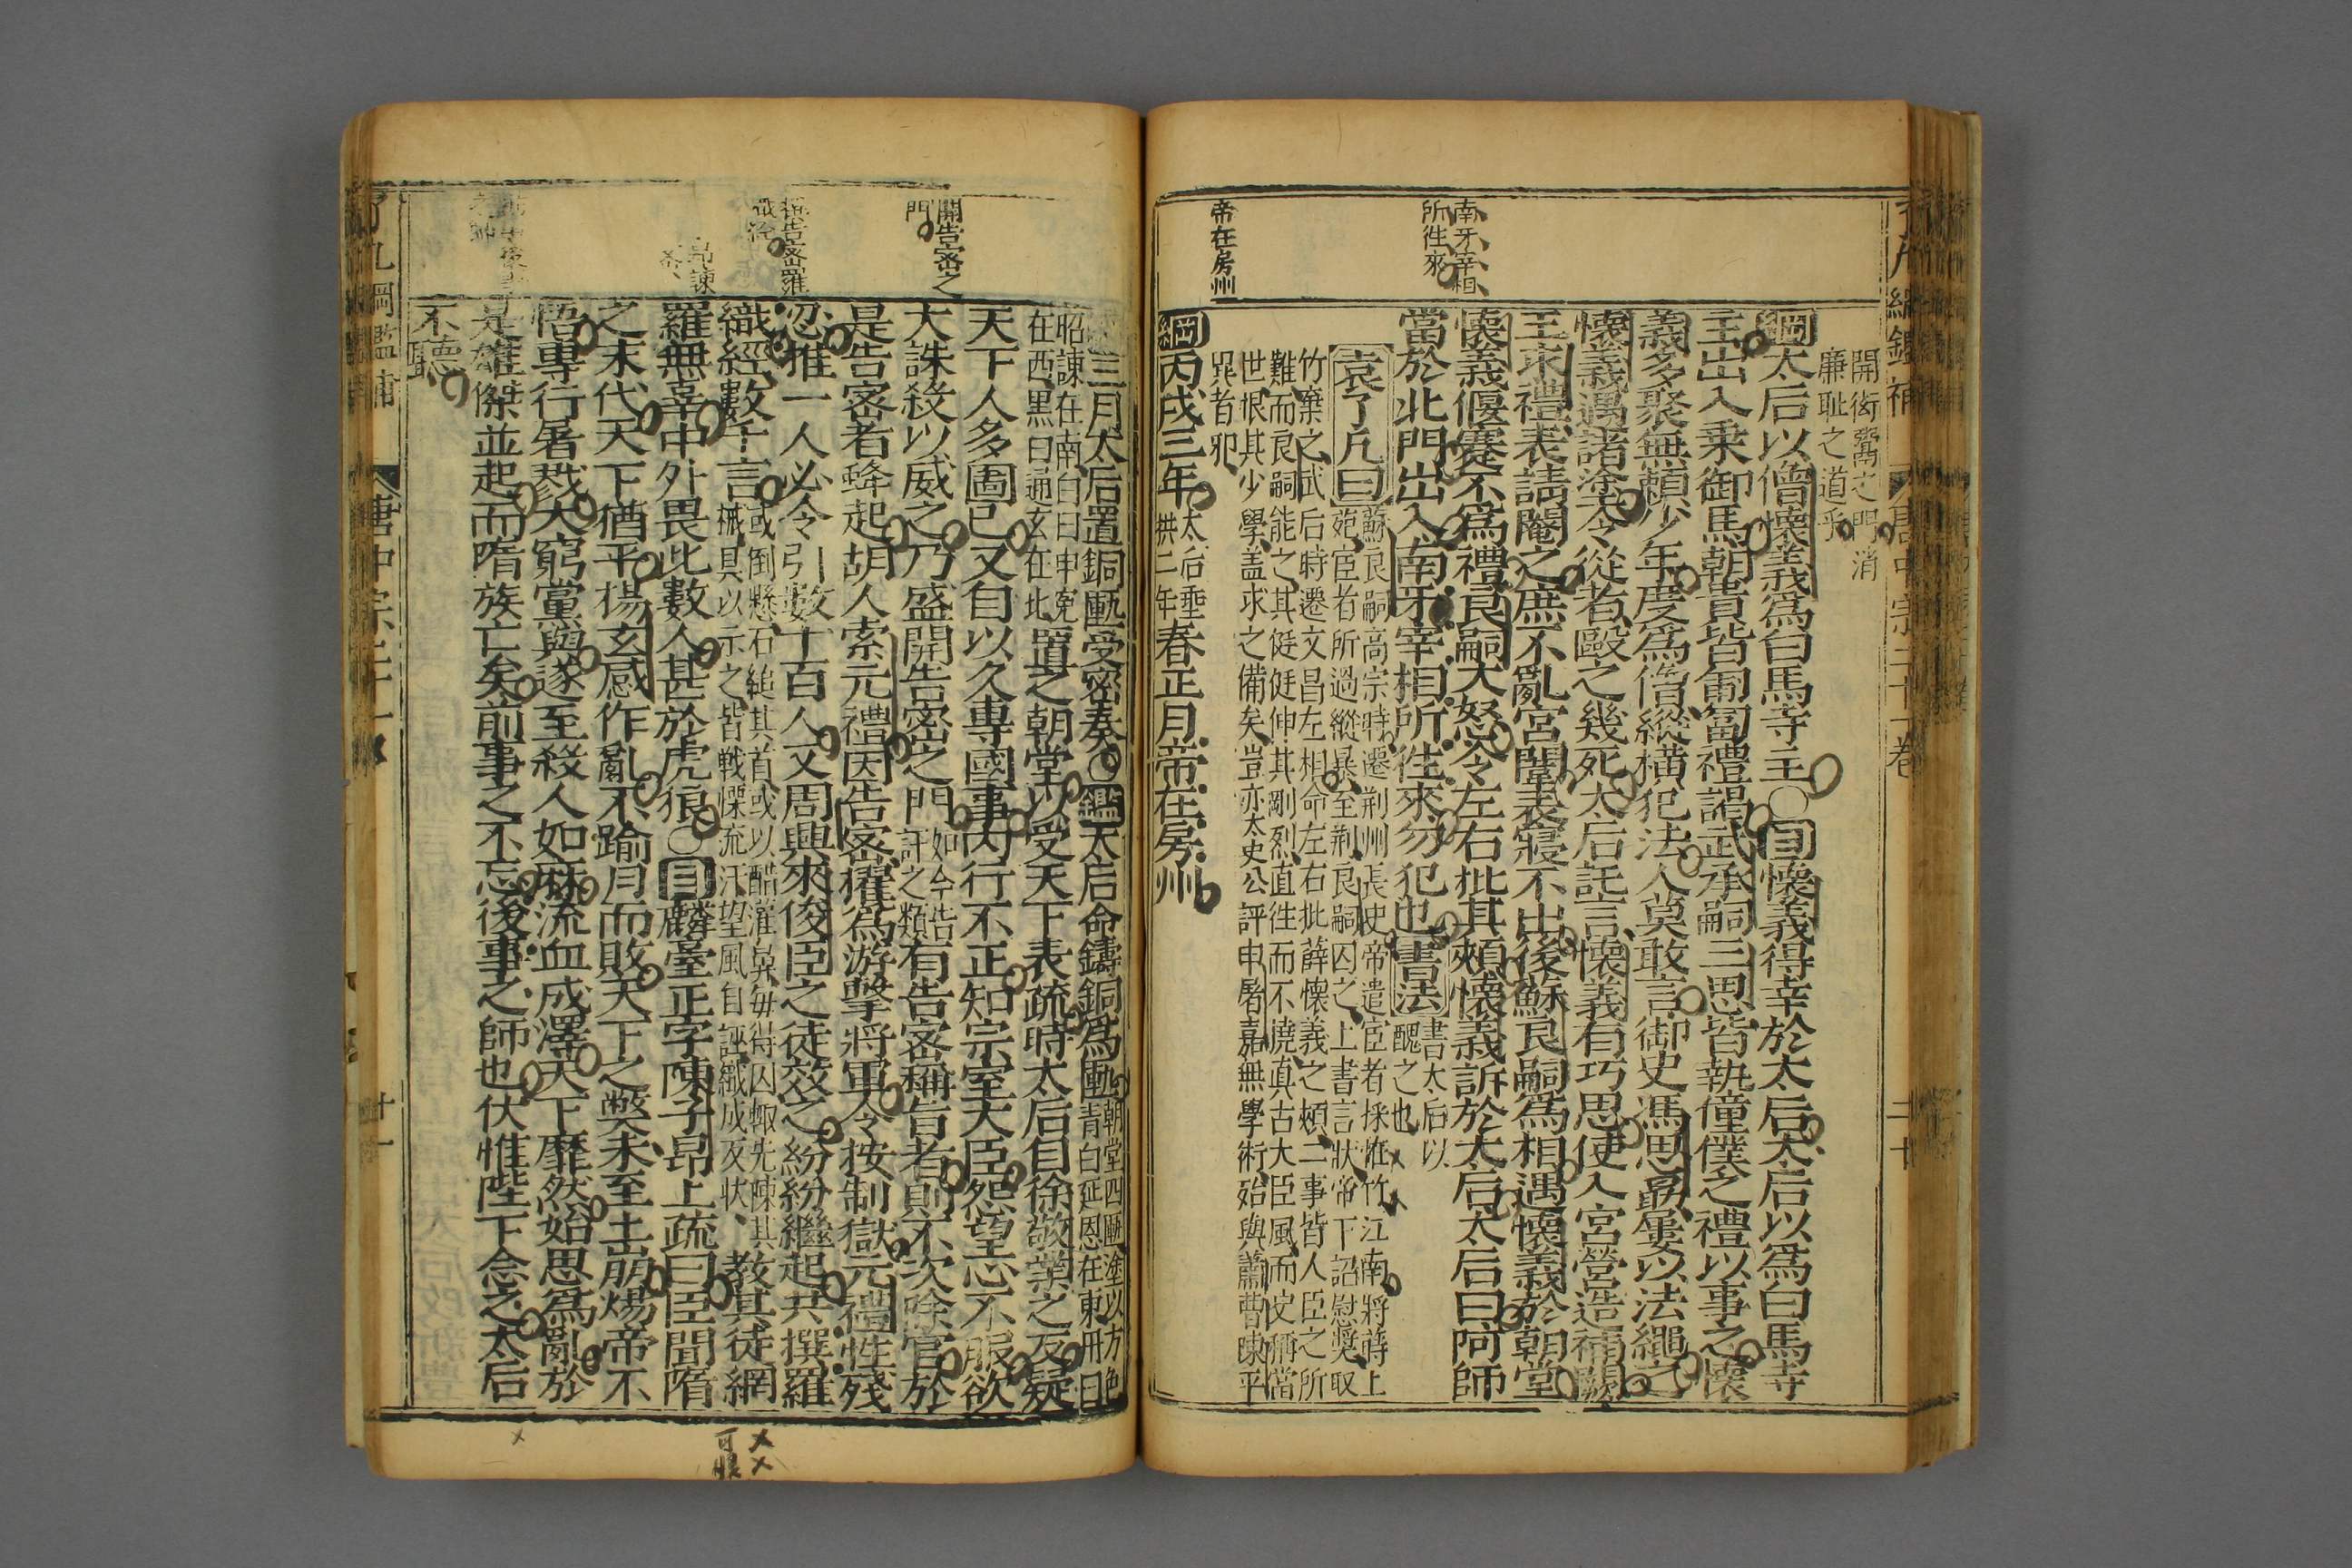 開衒鬻之門消
廉耻之道乎
綱太后以僧懷義爲白馬寺主〇目懷義得幸於太后太后以爲白馬寺
主出入乗御馬朝貴皆匍匐禮謁武承嗣三思皆執僮僕之禮以事之懷
義多聚無頼少年度爲僧縱横犯法人莫敢言御史馮思勗屢以法繩之
懷義遇諸塗令從者毆之幾死太后託言懷義有巧思使入宫營造補闕
王求禮表請閹之庶不亂宫闈表寢不出後蘇良嗣爲相遇懷義於朝堂
懷義偃蹇不爲禮良嗣大怒令左右批其頰懷義訴於太后太后曰阿師
南牙宰相
所徃來
當於北門出入南牙宰相所徃來勿犯也書法書太后以
醜之也
袁了凡曰蘇良嗣高宗時遷荆州長史帝遣宦者採怪竹江南將蒔上
苑宦者所過縱暴至荆良嗣囚之上書言狀帝下詔慰奬取
竹棄之武后時遷文昌左相命左右批薛懷義之頰二事皆人臣之所
難而良嗣能之其侹侹伸其剛烈直徃而不撓真古大臣風而史稱當
世恨其少學盖求之備矣豈亦太史公評申屠嘉無學術殆與蕭曹陳平
異者犯
帝在房州
綱丙戌三年太后垂
拱二年春正月帝在房州
綱三月太后置銅匭受密奏〇鑑太后命鑄銅爲匭朝堂四匭塗以方色
青曰延恩在東丹曰
昭諫在南白曰申寃
在西黒曰通玄在北置之朝堂以受天下表疏時太后自徐敬業之反疑
天下人多圖已又自以久專國事内行不正知宗室大臣怨望心不服欲
開告密之
門
大誅殺以威之乃盛開告密之門如今告
訐之類有告密稱旨者則不次除官於
是告密者蜂起胡人索元禮因告密擢爲游擊將軍令按制獄元禮性殘
忍推一人必令引數十百人又周興來俊臣之徒效之紛紛繼起共撰羅
告密羅
織經
織經數千言或倒懸石縋其首或以醋灌鼻毎得囚輙先陳其
械具以示之皆戰慄流汗望風自誣織成反狀教其徒網
羅無辜中外畏此數人甚於虎狼〇目麟臺正字陳子昻上疏曰臣聞隋
之末代天下猶平楊玄感作亂不踰月而敗天下之獘未至土崩煬帝不
悟專行暑戮大窮黨與遂至殺人如麻流血成澤天下靡然始思爲亂於
是雄傑並起而隋族亡矣前事之不忘後事之師也伏惟陛下念之太后
不聽
唐中宗